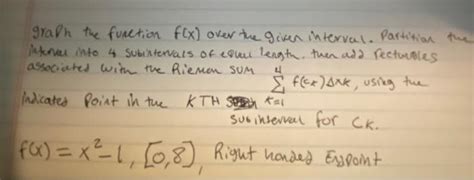 graph the function f(x) over the given interval. Partition the
interval into 4 subintervals of equal length. then add rectangles
associated with the Riemen SUM 4∑k=1 f(cₖ)Δxₖ, using the
indicated Point in the KTH
subinterval for Cₖ.
f(x) = x²-1, [0,8], Right handed Endpoint